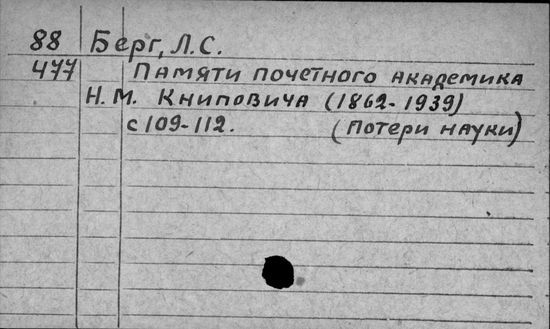 88 Берг, Л.С.
477 Памяти почетного академика
Н.М. Книповича (1862-1939)
с 109-112. (Потери науки)